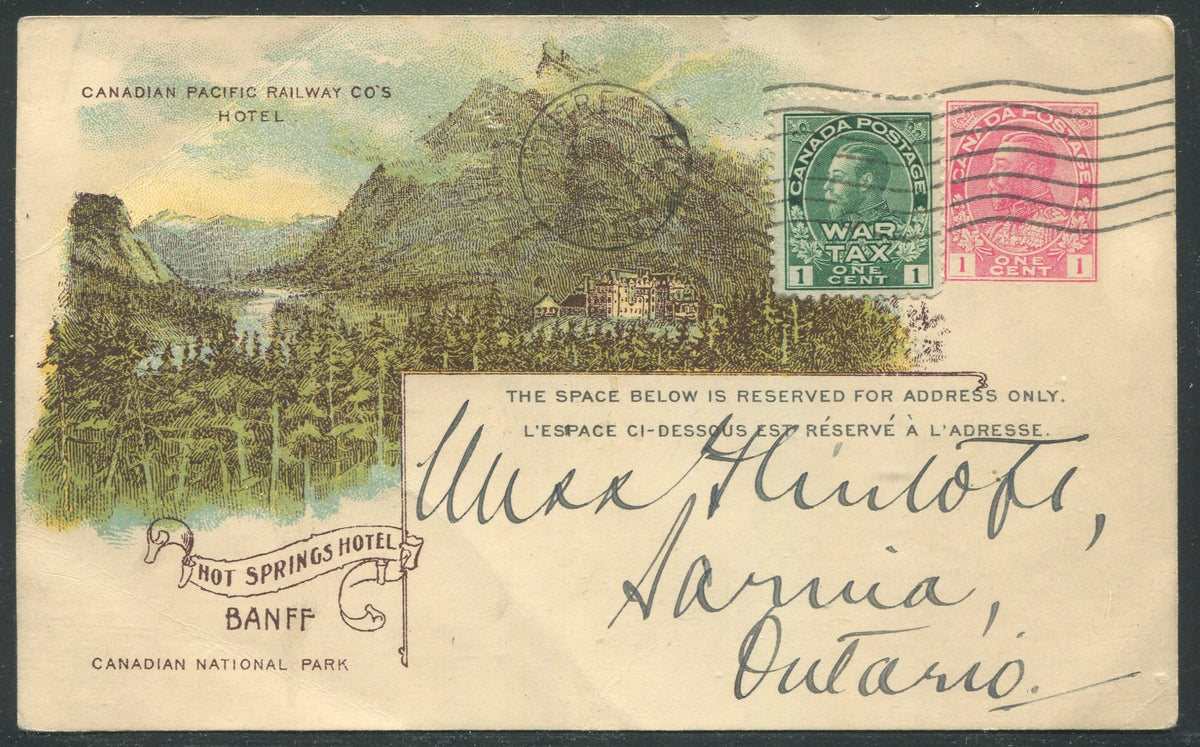 CANADIAN PACIFIC RAILWAY CO'S
HOTEL
CANADA POSTAGE
WAR
TAX
1 ONE 1
CENT
CANADA POSTAGE
1 ONE 1
CENT
THE SPACE BELOW IS RESERVED FOR ADDRESS ONLY.
L'ESPACE CI-DESSOUS EST RÉSERVÉ À L'ADRESSE.
Miss
Sarnia,
Ontario.
HOT SPRINGS HOTEL
BANFF
CANADIAN NATIONAL PARK